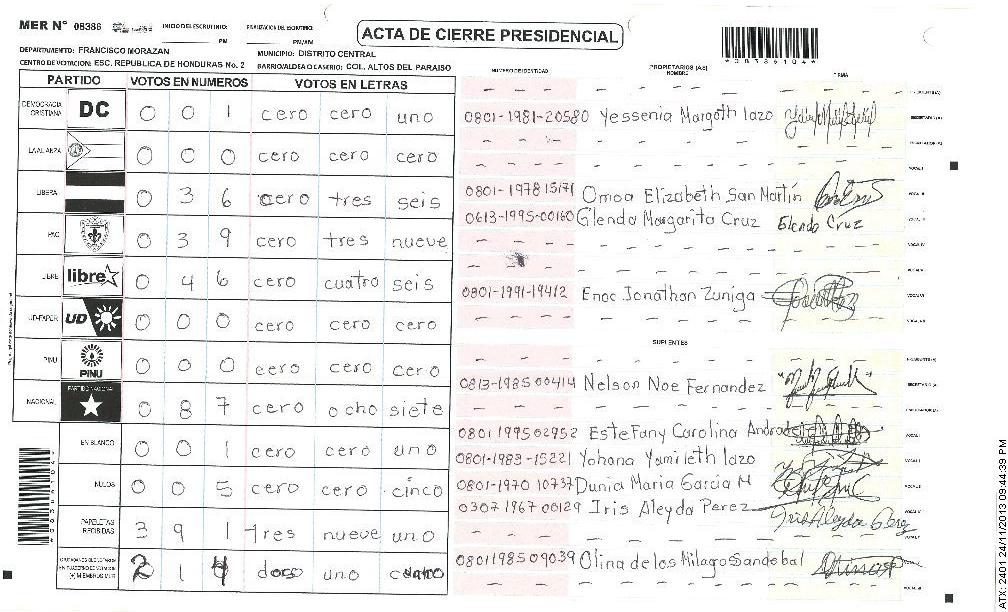 MER N° 08386 INICIO DEL ESCRUTINIO: PM FINALIZACION DEL ESCRUTINIO: PM/AM ACTA DE CIERRE PRESIDENCIAL
DEPARTAMENTO: FRANCISCO MORAZAN MUNICIPIO: DISTRITO CENTRAL
CENTRO DE VOTACION: ESC. REPUBLICA DE HONDURAS No. 2 BARRIO/ALDEA O CASERIO: COL. ALTOS DEL PARAISO
*08386104*
PARTIDO VOTOS EN NUMEROS VOTOS EN LETRAS
DEMOCRACIA CRISTIANA DC 0 0 1 cero cero uno
LA ALIANZA 0 0 0 cero cero cero
LIBERAL 0 3 6 cero tres seis
PAC 0 3 9 cero tres nueve
LIBRE libre 0 4 6 cero cuatro seis
UD-FAPER UD 0 0 0 cero cero cero
PINU PINU 0 0 0 cero cero cero
NACIONAL PARTIDO NACIONAL 0 8 7 cero ocho siete
EN BLANCO 0 0 1 cero cero uno
NULOS 0 0 5 cero cero cinco
PAPELETAS RECIBIDAS 3 9 1 tres nueve uno
2 1 4 uno
NUMERO DE IDENTIDAD PROPIETARIOS (AS) NOMBRE FIRMA
0801-1981-20580 Yessenia Margoth lazo SECRETARIO (A)
0801-1978 15171 Omoa Elizabeth San Martín
0613-1995-00160 Glenda Margarita Cruz Glenda Cruz
0801-1991-19412 Enoc Jonathan Zuniga
SUPLENTES
0813-1985 00414 Nelson Noe Fernandez SECRETARIO (A)
0801 1995 02952 Estefany Carolina Andrade
0801-1983-15221 Yohana Yamileth lazo
0801-1970 10737 Dunia Maria Garcia M
0307 1967 00129 Iris Aleyda Perez Iris Aleyda Perez
0801198509039 Olina de los Milagro Sandobal
ATX: 2401 24/11/2013 09:44:39 PM